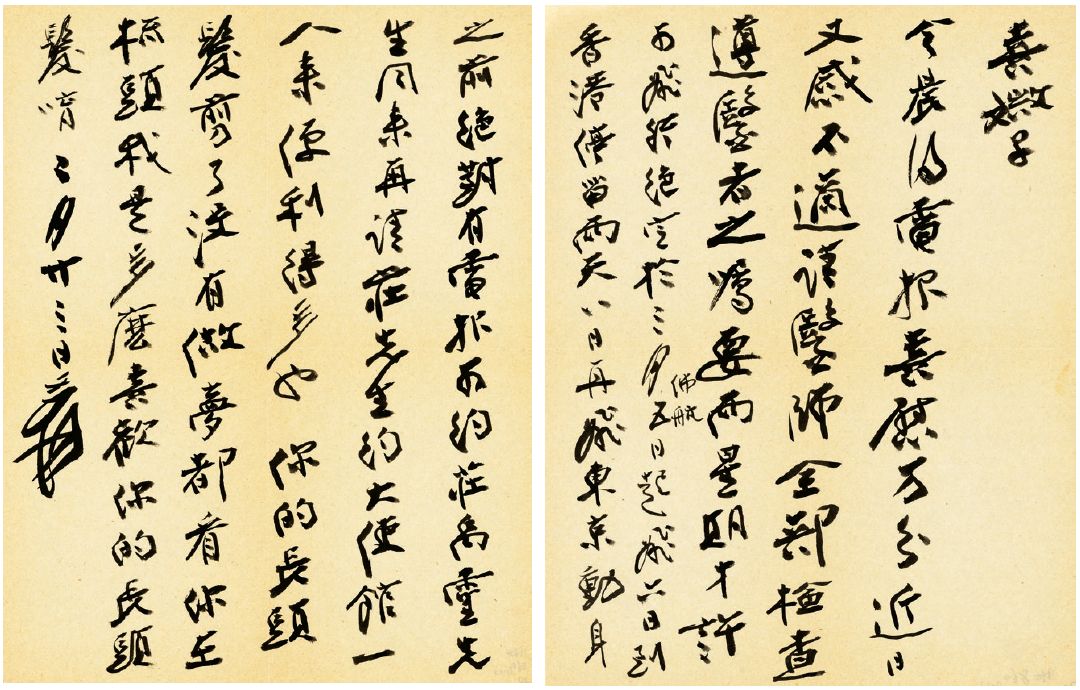 喜嫩子
今晨得電报喜慰万分近日
又感不適請醫师全部檢查
遵醫者之囑要兩星期才許
可飛絕定於三月五日起飛六日到
香港停留兩天八日再飛東京動身
之前絕對有電报可約莊禹靈先
生同来再請莊先生約大使館一
人来便利得多也 你的長頭
髮剪了沒有做夢都看你在
梳頭我是多麼喜歡你的長頭
髮唷 二月廿三日爰